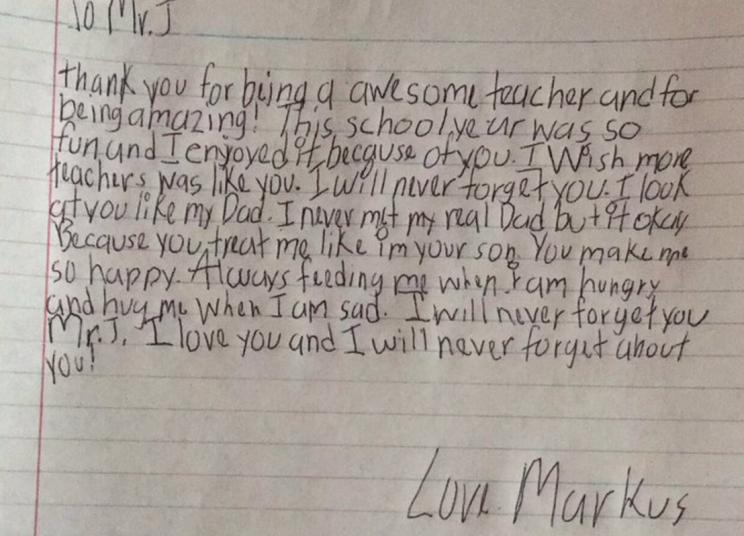 To Mr.J
thank you for being a awesome teacher and for
being amazing! This school year was so
fun and I enjoyed it because of you. I wish more
teachers was like you. I will never forget you. I look
at you like my Dad. I never met my real Dad but it okay
Because you treat me like i'm your son. You make me
so happy. Always feeding me when I am hungry
and hug me when I am sad. I will never forget you
Mr.J. I love you and I will never forget about
you!
Love Markus